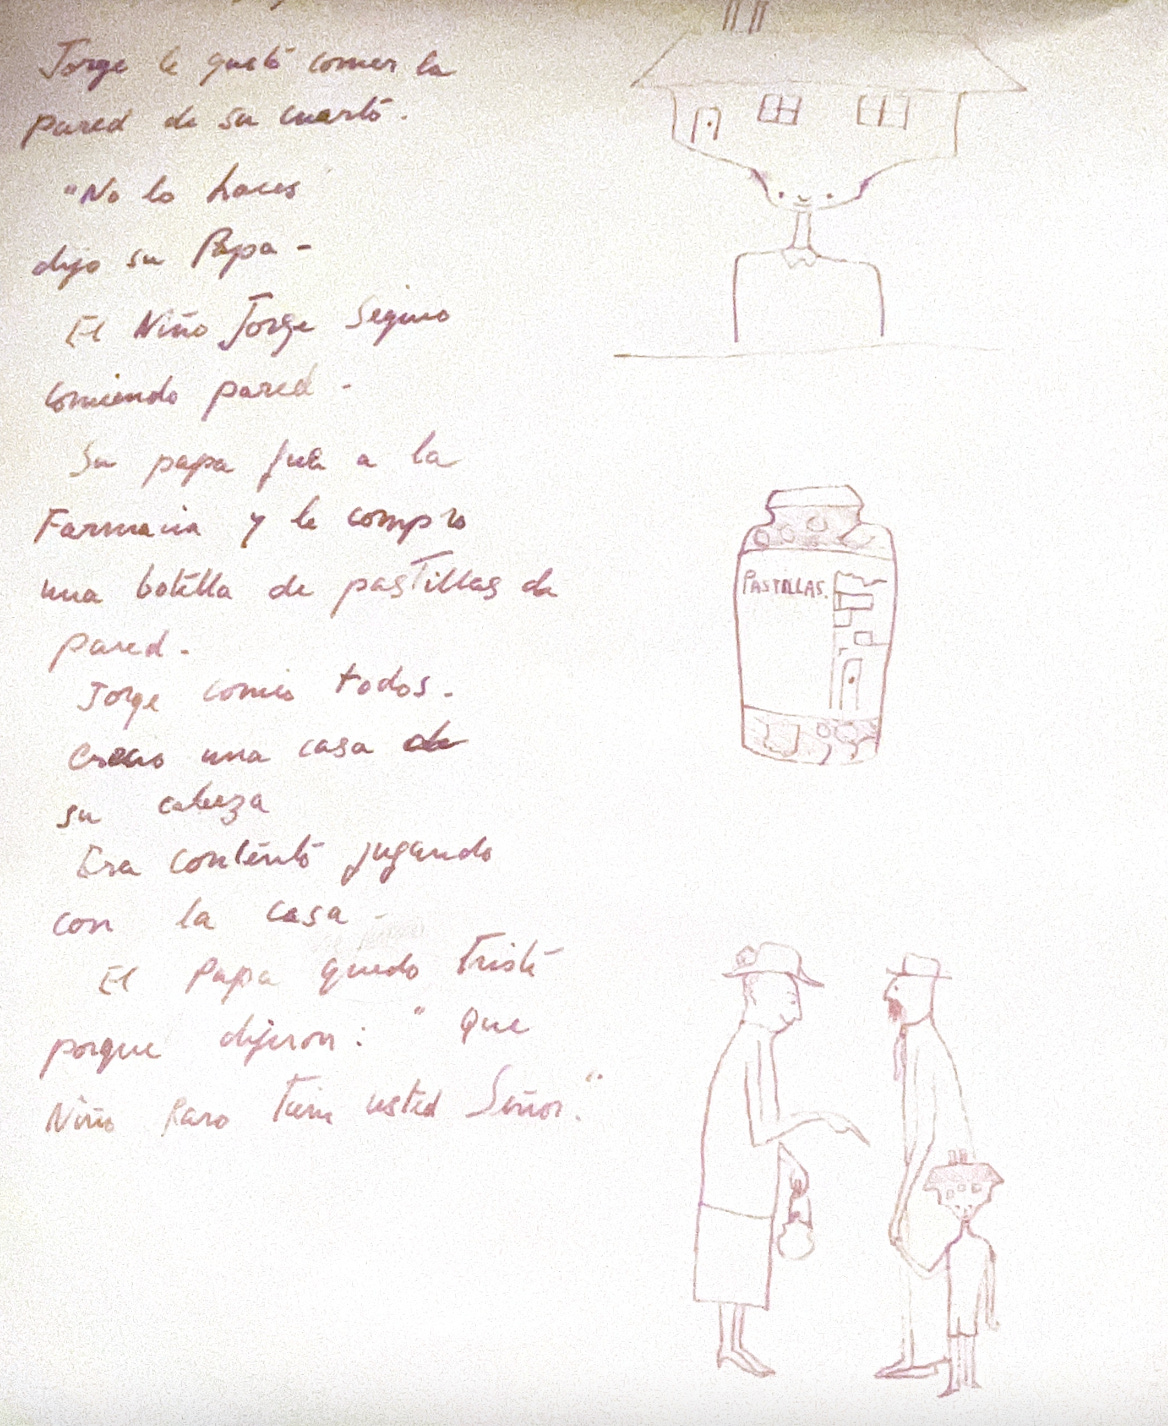 Jorge le gustó comer la
pared de su cuarto.
"No lo haces
dijo su Papa -
El Niño Jorge Seguio
comiendo pared -
Su papa fue a la
Farmacia y le compro
una botella de pastillas de
pared -
Jorge comio todos -
Crecio una casa de
su cabeza
Era contento jugando
con la casa -
El Papa quedo triste
porque dijeron: "Que
Niño Raro Tiene usted Señor."
PASTILLAS.